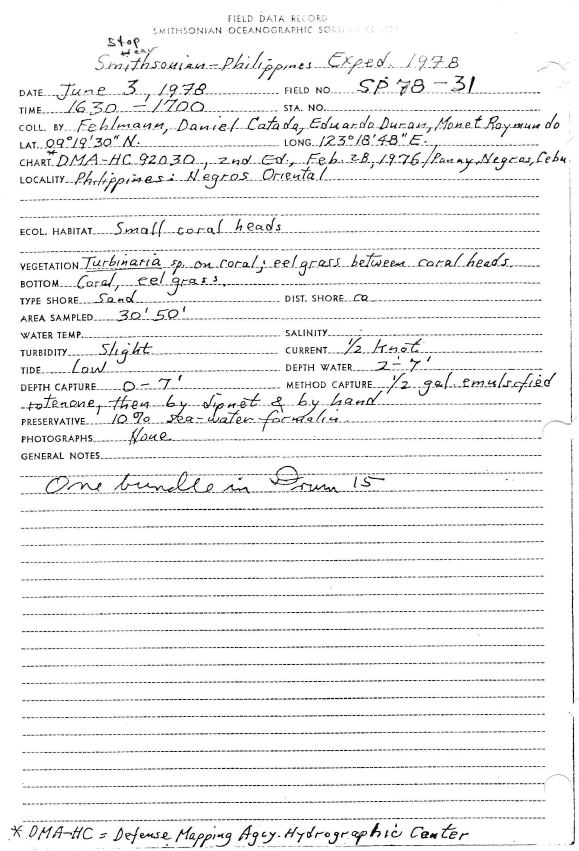 FIELD DATA RECORD
SMITHSONIAN OCEANOGRAPHIC SORTING CENTER
Stop
Smithsonian-Philippines Exped. 1978
DATE June 3, 1978 FIELD NO. SP 78-31
TIME 1630-1700 STA. NO.
COLL. BY Fehlmann, Daniel Catada, Eduardo Duran, Monet Raymundo
LAT. 09°19'30" N. LONG. 123°18'48" E.
CHART *DMA-HC 92030, 2nd Ed., Feb. 28, 1976/Panay, Negros, Cebu
LOCALITY Philippines: Negros Oriental
ECOL. HABITAT Small coral heads
VEGETATION Turbinaria sp. on coral; eel grass between coral heads.
BOTTOM Coral, eel grass.
TYPE SHORE Sand DIST. SHORE ca
AREA SAMPLED 30' 50'
WATER TEMP. SALINITY
TURBIDITY Slight CURRENT 1/2 Knot
TIDE Low DEPTH WATER 2-7'
DEPTH CAPTURE 0-7' METHOD CAPTURE 1/2 gal emulsified
rotenone, then by dipnet & by hand
PRESERVATIVE 10% sea-water formalin.
PHOTOGRAPHS None
GENERAL NOTES
One bundle in Drum 15
* DMA-HC = Defense Mapping Agcy. Hydrographic Center